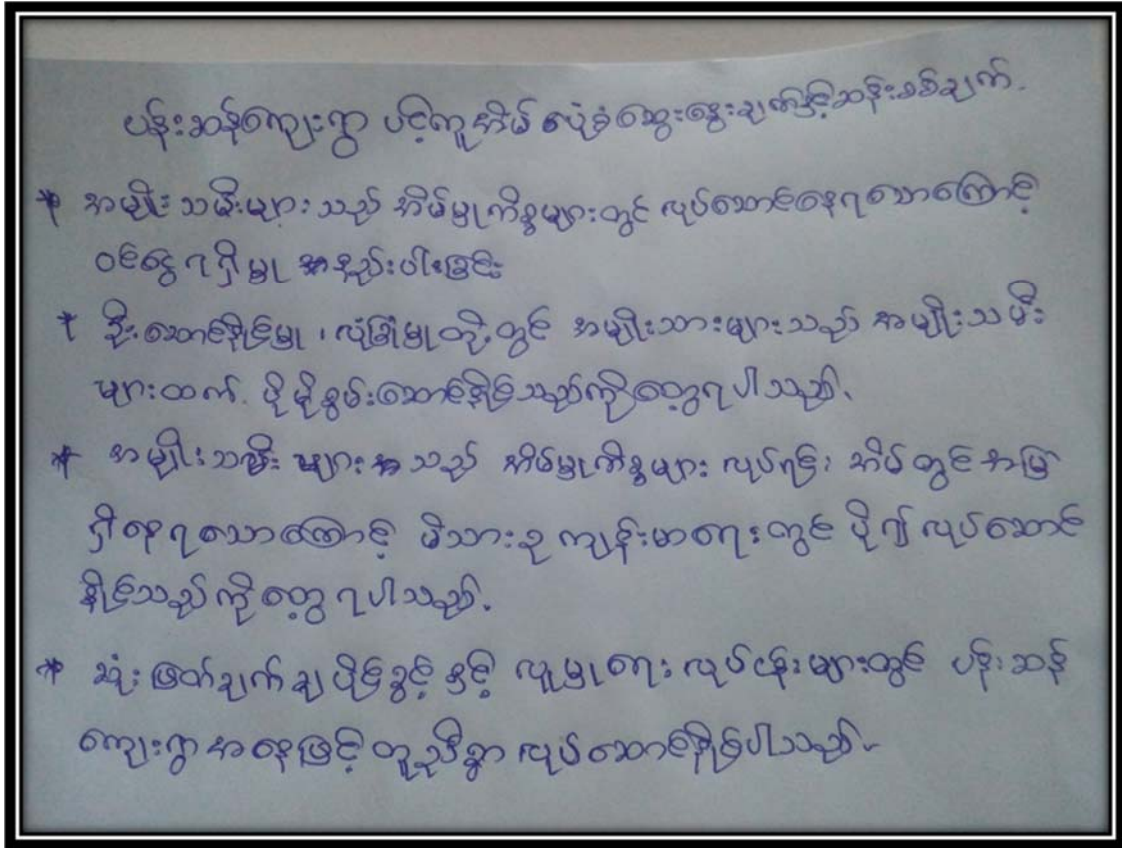 ပန်းဆန်ကျေးရွာ ပင့်ကူအိမ် ပုံစံဆွေးနွေးချက်နှင့်ဆန်းစစ်ချက်.
* အမျိုးသမီးများသည် အိမ်မှုကိစ္စများတွင် လုပ်ဆောင်နေရသောကြောင့်
ဝင်ငွေရရှိမှု အနည်းပါးခြင်း
* ဦးဆောင်နိုင်မှု ၊ လုံခြုံမှုတို့တွင် အမျိုးသားများသည် အမျိုးသမီး
များထက် ပိုမိုစွမ်းဆောင်နိုင်သည်ကိုတွေ့ရပါသည်.
* အမျိုးသမီး များသည် အိမ်မှုကိစ္စများ လုပ်ရင်း အိမ်တွင်အမြဲ
ရှိနေရသောကြောင့် မိသားစု ကျန်းမာရေးတွင် ပို၍ လုပ်ဆောင်
နိုင်သည်ကို တွေ့ရပါသည်.
* ဆုံးဖြတ်ချက်ချပိုင်ခွင့် နှင့် လူမှုရေး လုပ်ငန်းများတွင် ပန်းဆန်
ကျေးရွာအနေဖြင့် တူညီစွာ လုပ်ဆောင်နိုင်ပါသည်.